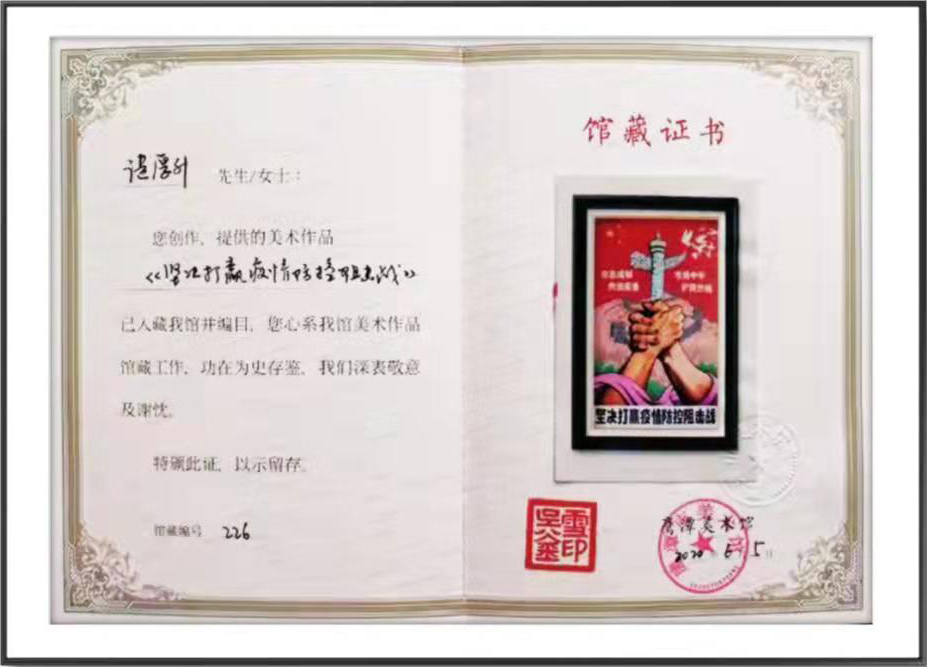 先生/女士：
您创作、提供的美术作品
《坚决打赢疫情防控阻击战》
已入藏我馆并编目，您心系我馆美术作品
馆藏工作，功在为史存鉴，我们深表敬意
及谢忱。
特颁此证，以示留存。
馆藏编号 226
馆藏证书
众志成城
坚决打赢疫情防控阻击战
鹰潭美术馆
2020 6 5日